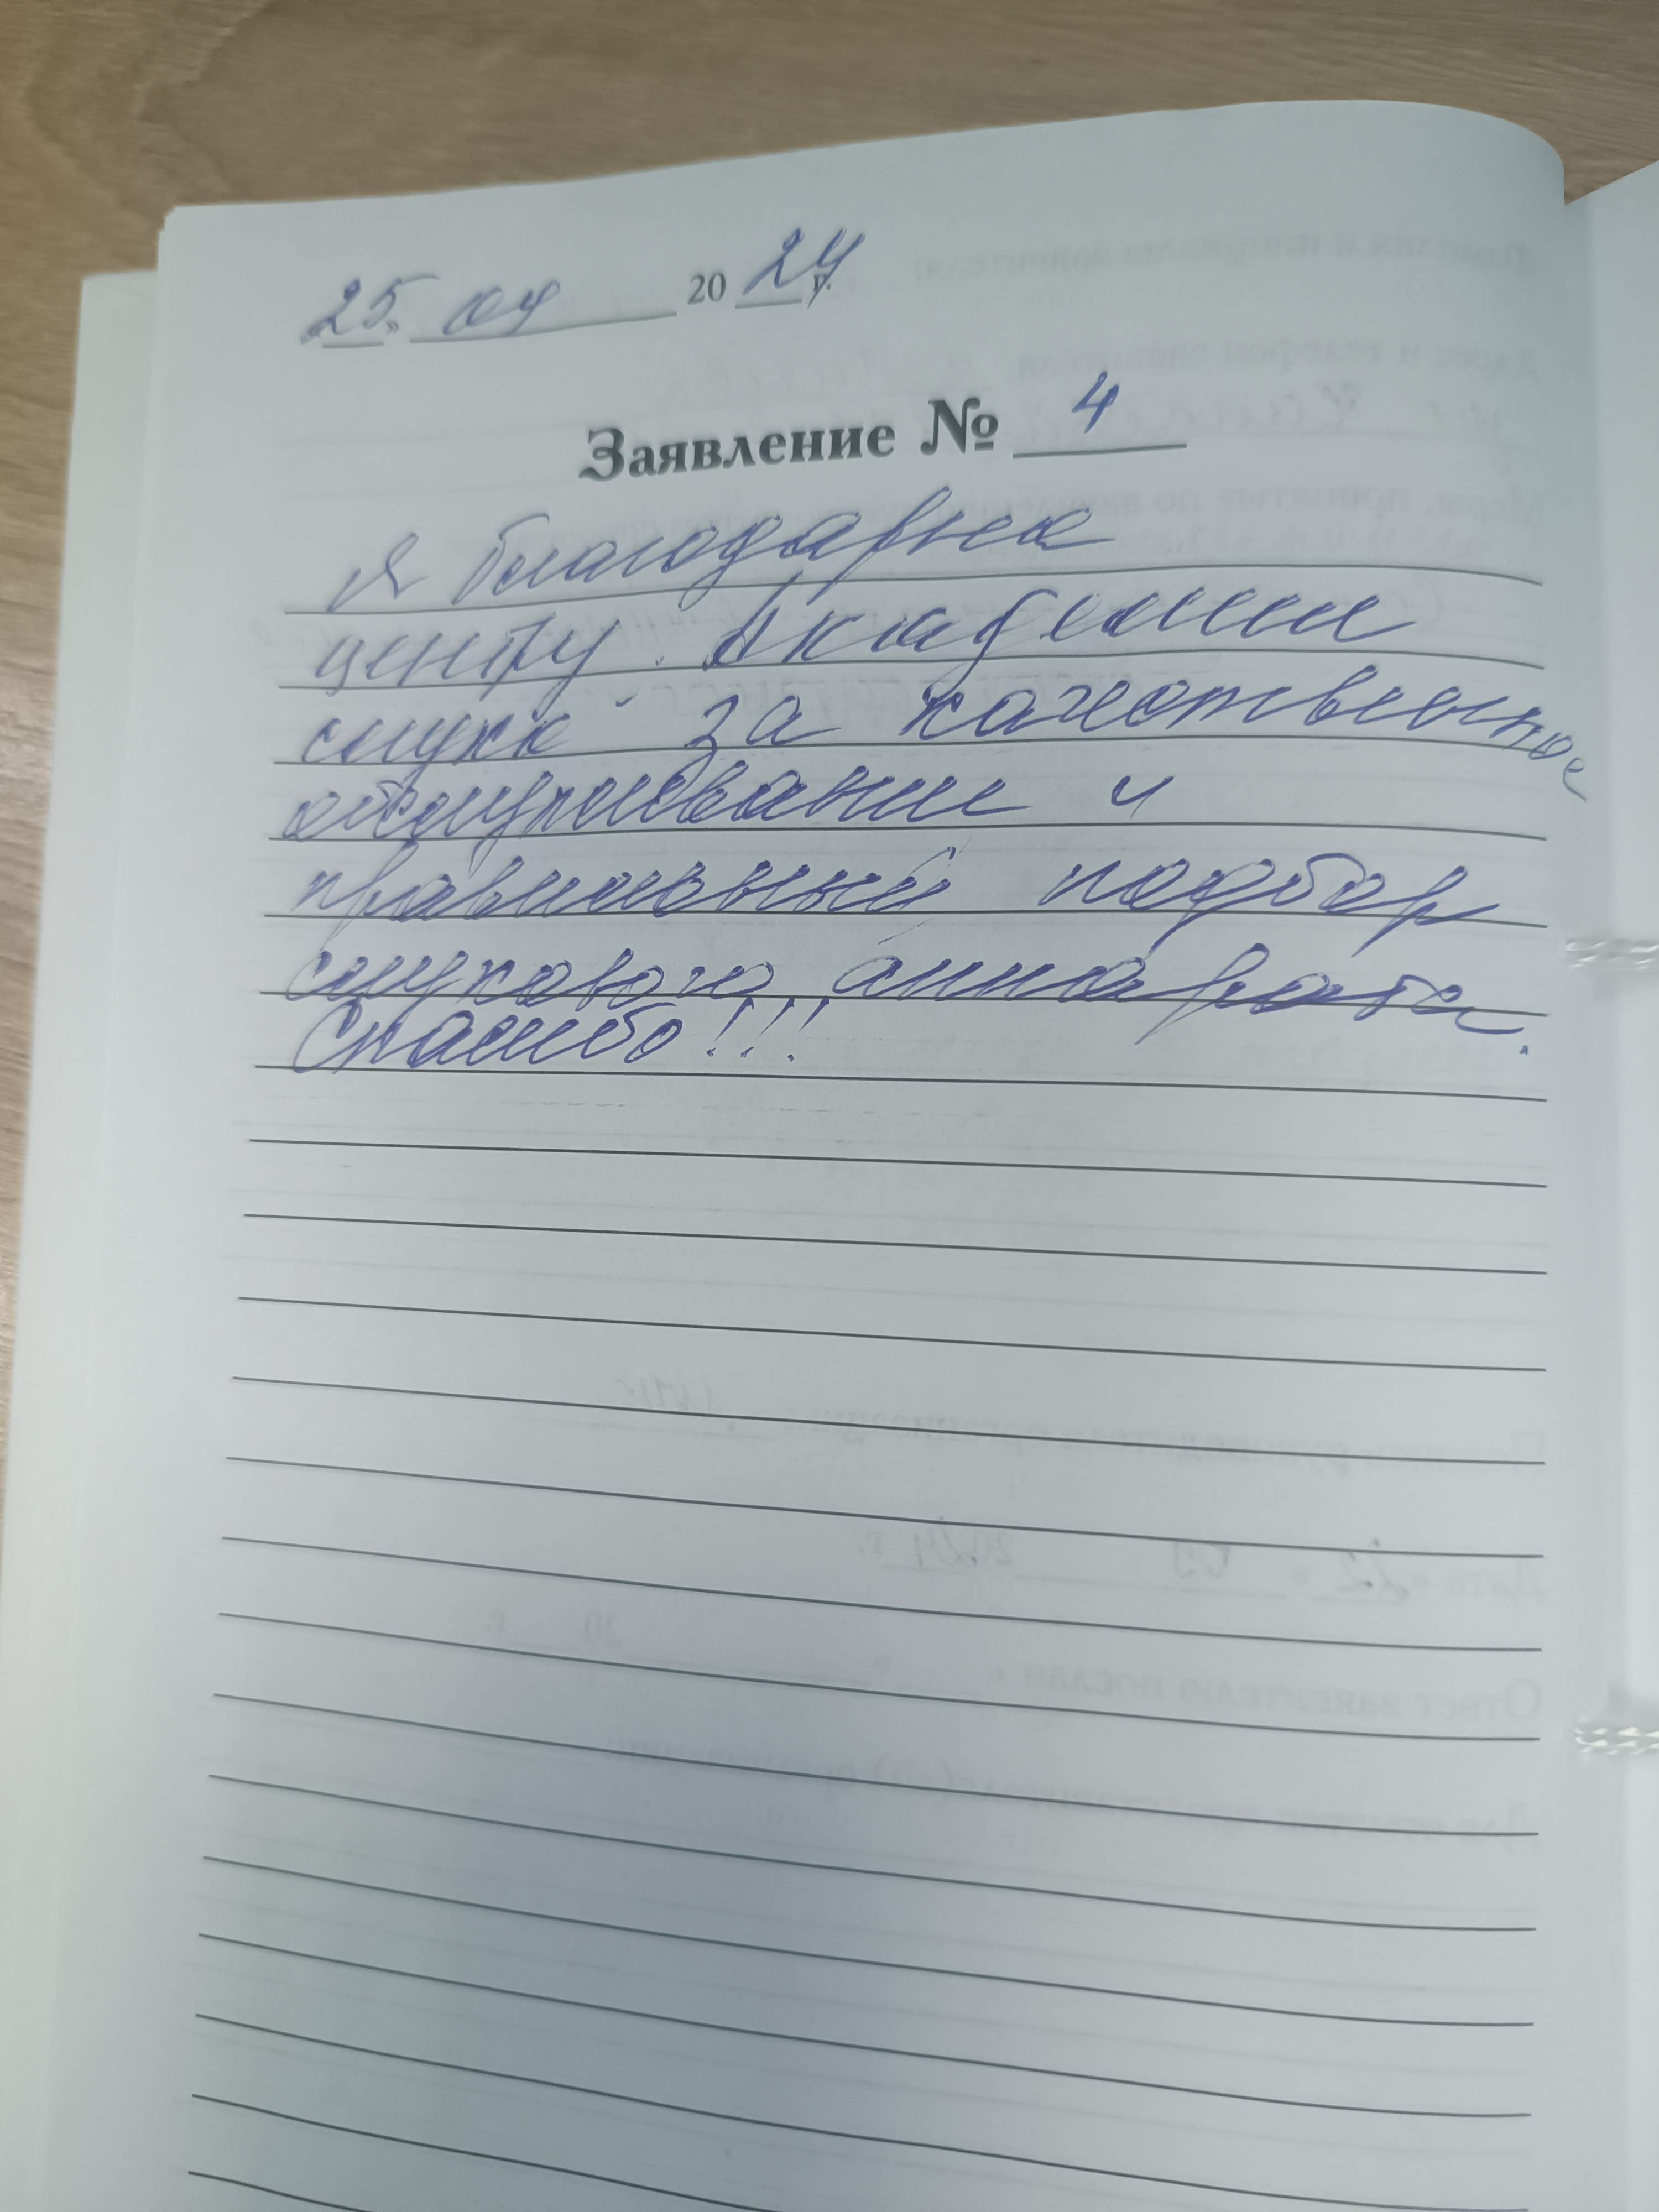 25» 04 2024 г.
Заявление № 4
Я благодарна
центу "Академии
слуха" за качественное
обслуживание и
правильный подбор
слухового аппарата.
Спасибо!!!